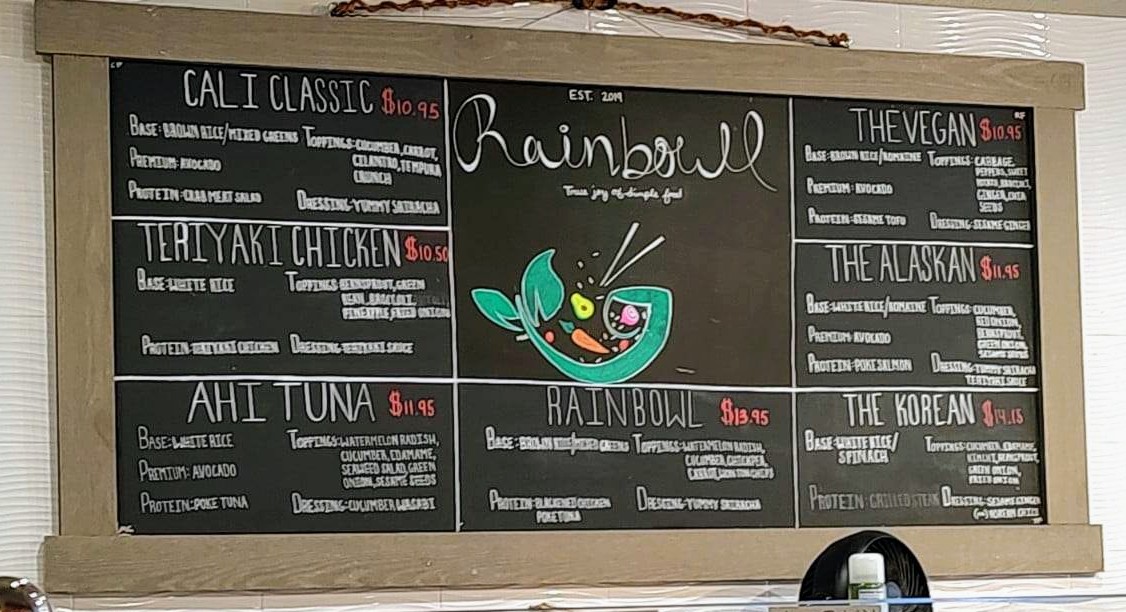 EST. 2019
Rainbowll
True joy of simple food
CALI CLASSIC $10.95
BASE: BROWN RICE/MIXED GREENS
PREMIUM: AVOCADO
PROTEIN: CRAB MEAT SALAD
TOPPINGS: CUCUMBER, CARROT,
CILANTRO, TEMPURA
CRUNCH
DRESSING: YUMMY SRIRACHA
TERIYAKI CHICKEN $10.50
BASE: WHITE RICE
PROTEIN: TERIYAKI CHICKEN
TOPPINGS: BEANSPROUT, GREEN
BEAN, BROCCOLI,
PINEAPPLE, FRIED ONIONS
DRESSING: TERIYAKI SAUCE
AHI TUNA $11.95
BASE: WHITE RICE
PREMIUM: AVOCADO
PROTEIN: POKE TUNA
TOPPINGS: WATERMELON RADISH,
CUCUMBER, EDAMAME,
SEAWEED SALAD, GREEN
ONION, SESAME SEEDS
DRESSING: CUCUMBER WASABI
RAINBOWL $13.95
BASE: BROWN RICE/MIXED GREENS
PROTEIN: BLACKENED CHICKEN
POKE TUNA
TOPPINGS: WATERMELON RADISH,
CUCUMBER, CHICKPEA,
CARROT, WONTON CHIPS
DRESSING: YUMMY SRIRACHA
THE VEGAN $10.95
BASE: BROWN RICE/ROMAINE
PREMIUM: AVOCADO
PROTEIN: SESAME TOFU
TOPPINGS: CABBAGE,
PEPPERS, SWEET
POTATO,
GINGER, CHIA
SEEDS
DRESSING: SESAME GINGER
THE ALASKAN $11.95
BASE: WHITE RICE/ROMAINE
PREMIUM: AVOCADO
PROTEIN: POKE SALMON
TOPPINGS: CUCUMBER,
RED ONION,
BEANSPROUT,
GREEN ONION,
SESAME SEEDS
DRESSING: YUMMY SRIRACHA
TERIYAKI SAUCE
THE KOREAN $14.15
BASE: WHITE RICE/
SPINACH
PROTEIN: GRILLED STEAK
TOPPINGS: CUCUMBER, EDAMAME,
KIMCHI, BEANSPROUT,
GREEN ONION,
FRIED ONION
DRESSING: SESAME GINGER
KOREAN